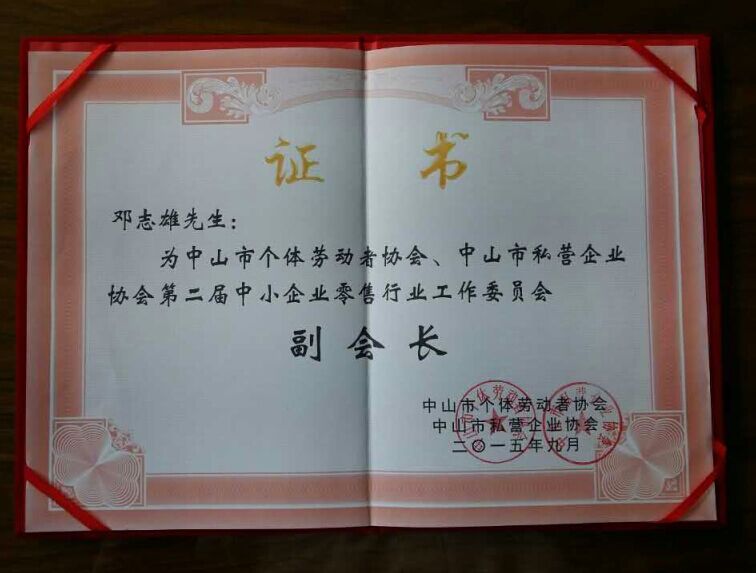 证书
邓志雄先生：
为中山市个体劳动者协会、中山市私营企业
协会第二届中小企业零售行业工作委员会
副会长
中山市个体劳动者协会
中山市私营企业协会
二〇一五年九月